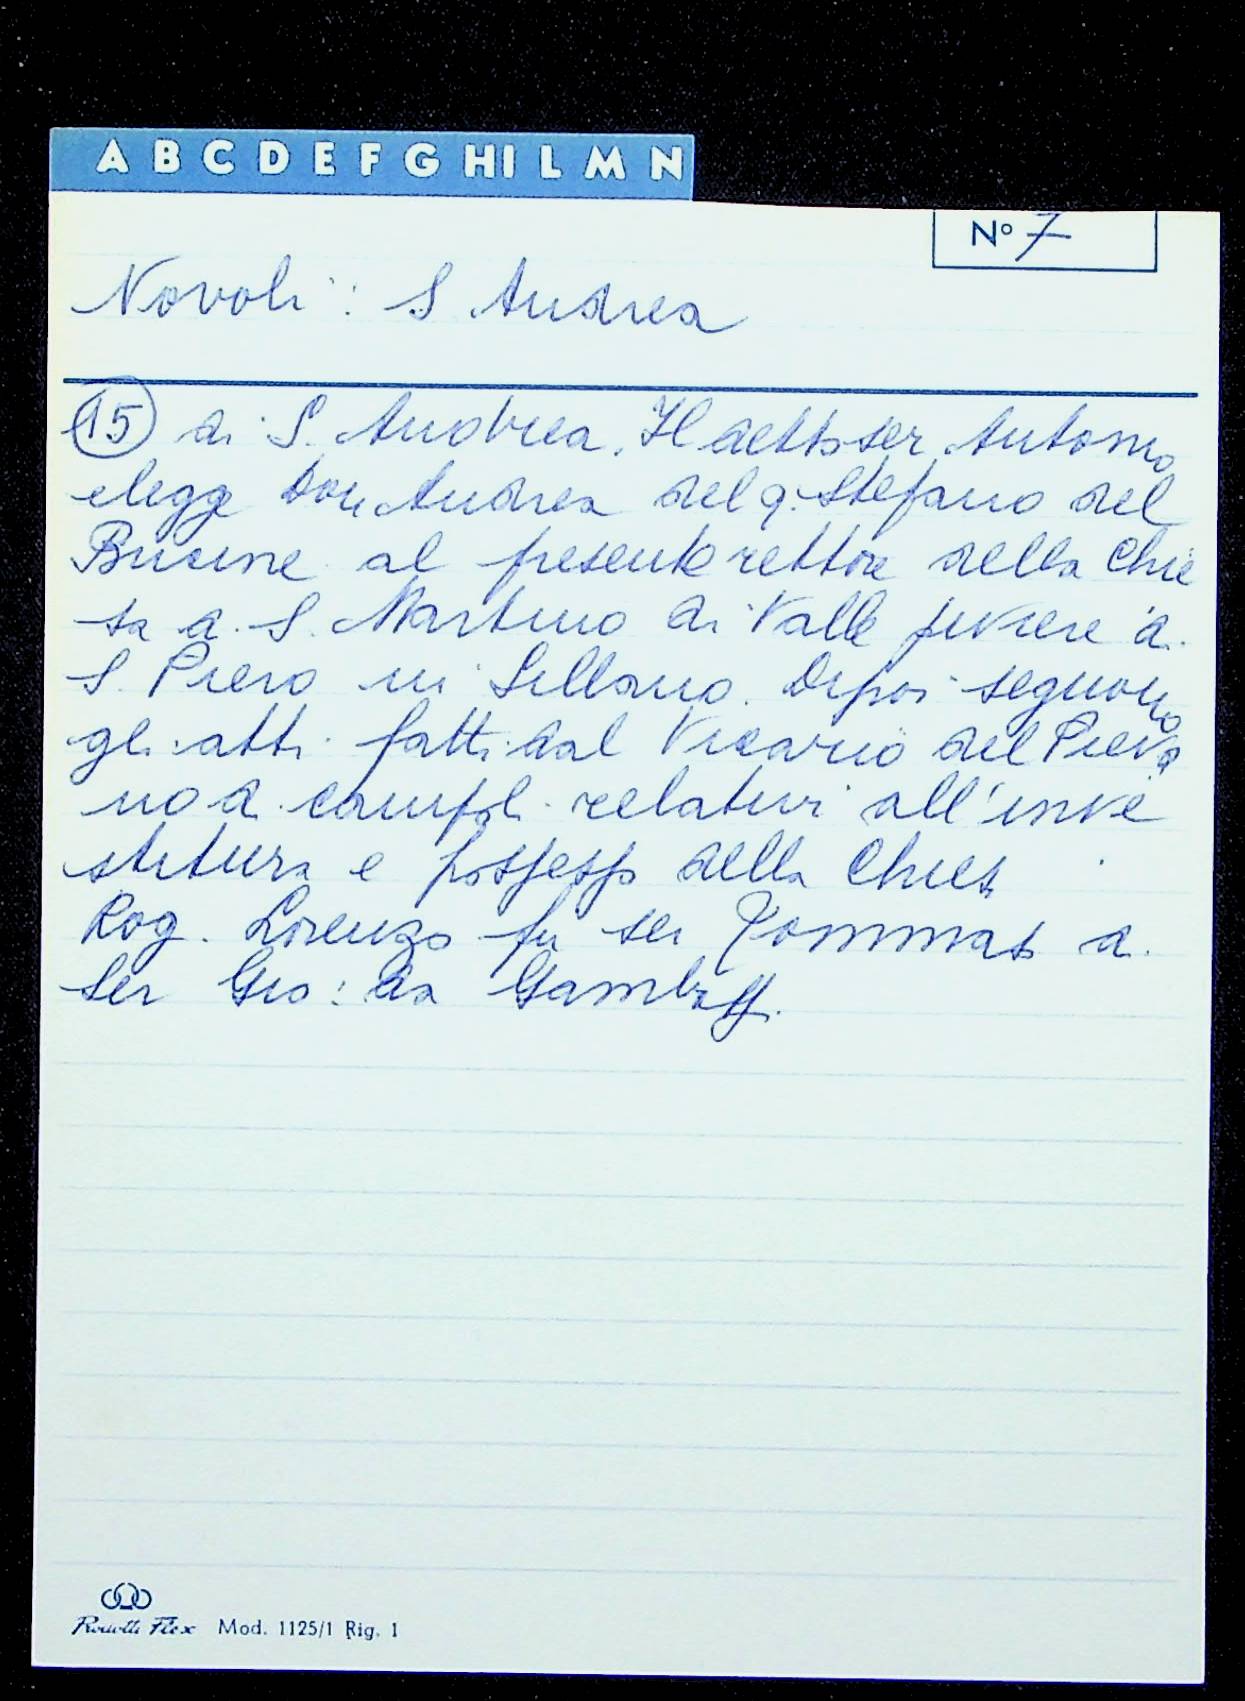 A B C D E F G HI L M N
Nº 7
Novoli: S Andrea
15 di S. Andrea. Il detto ser Antonio
elegge Don Andrea del q. Stefano del
Bucine al presente rettore della Chie
sa di S. Martino di Valle piviere di
S. Piero in Sillano. Dipoi seguono
gli atti fatti dal Vicario del Pieva
no di Campoli relativi all'inve
stitura e possesso della Chiesa
Rog. Lorenzo fu ser Tommaso di
Ser Gio: da Gambassi.
Mod. 1125/1 Rig. 1